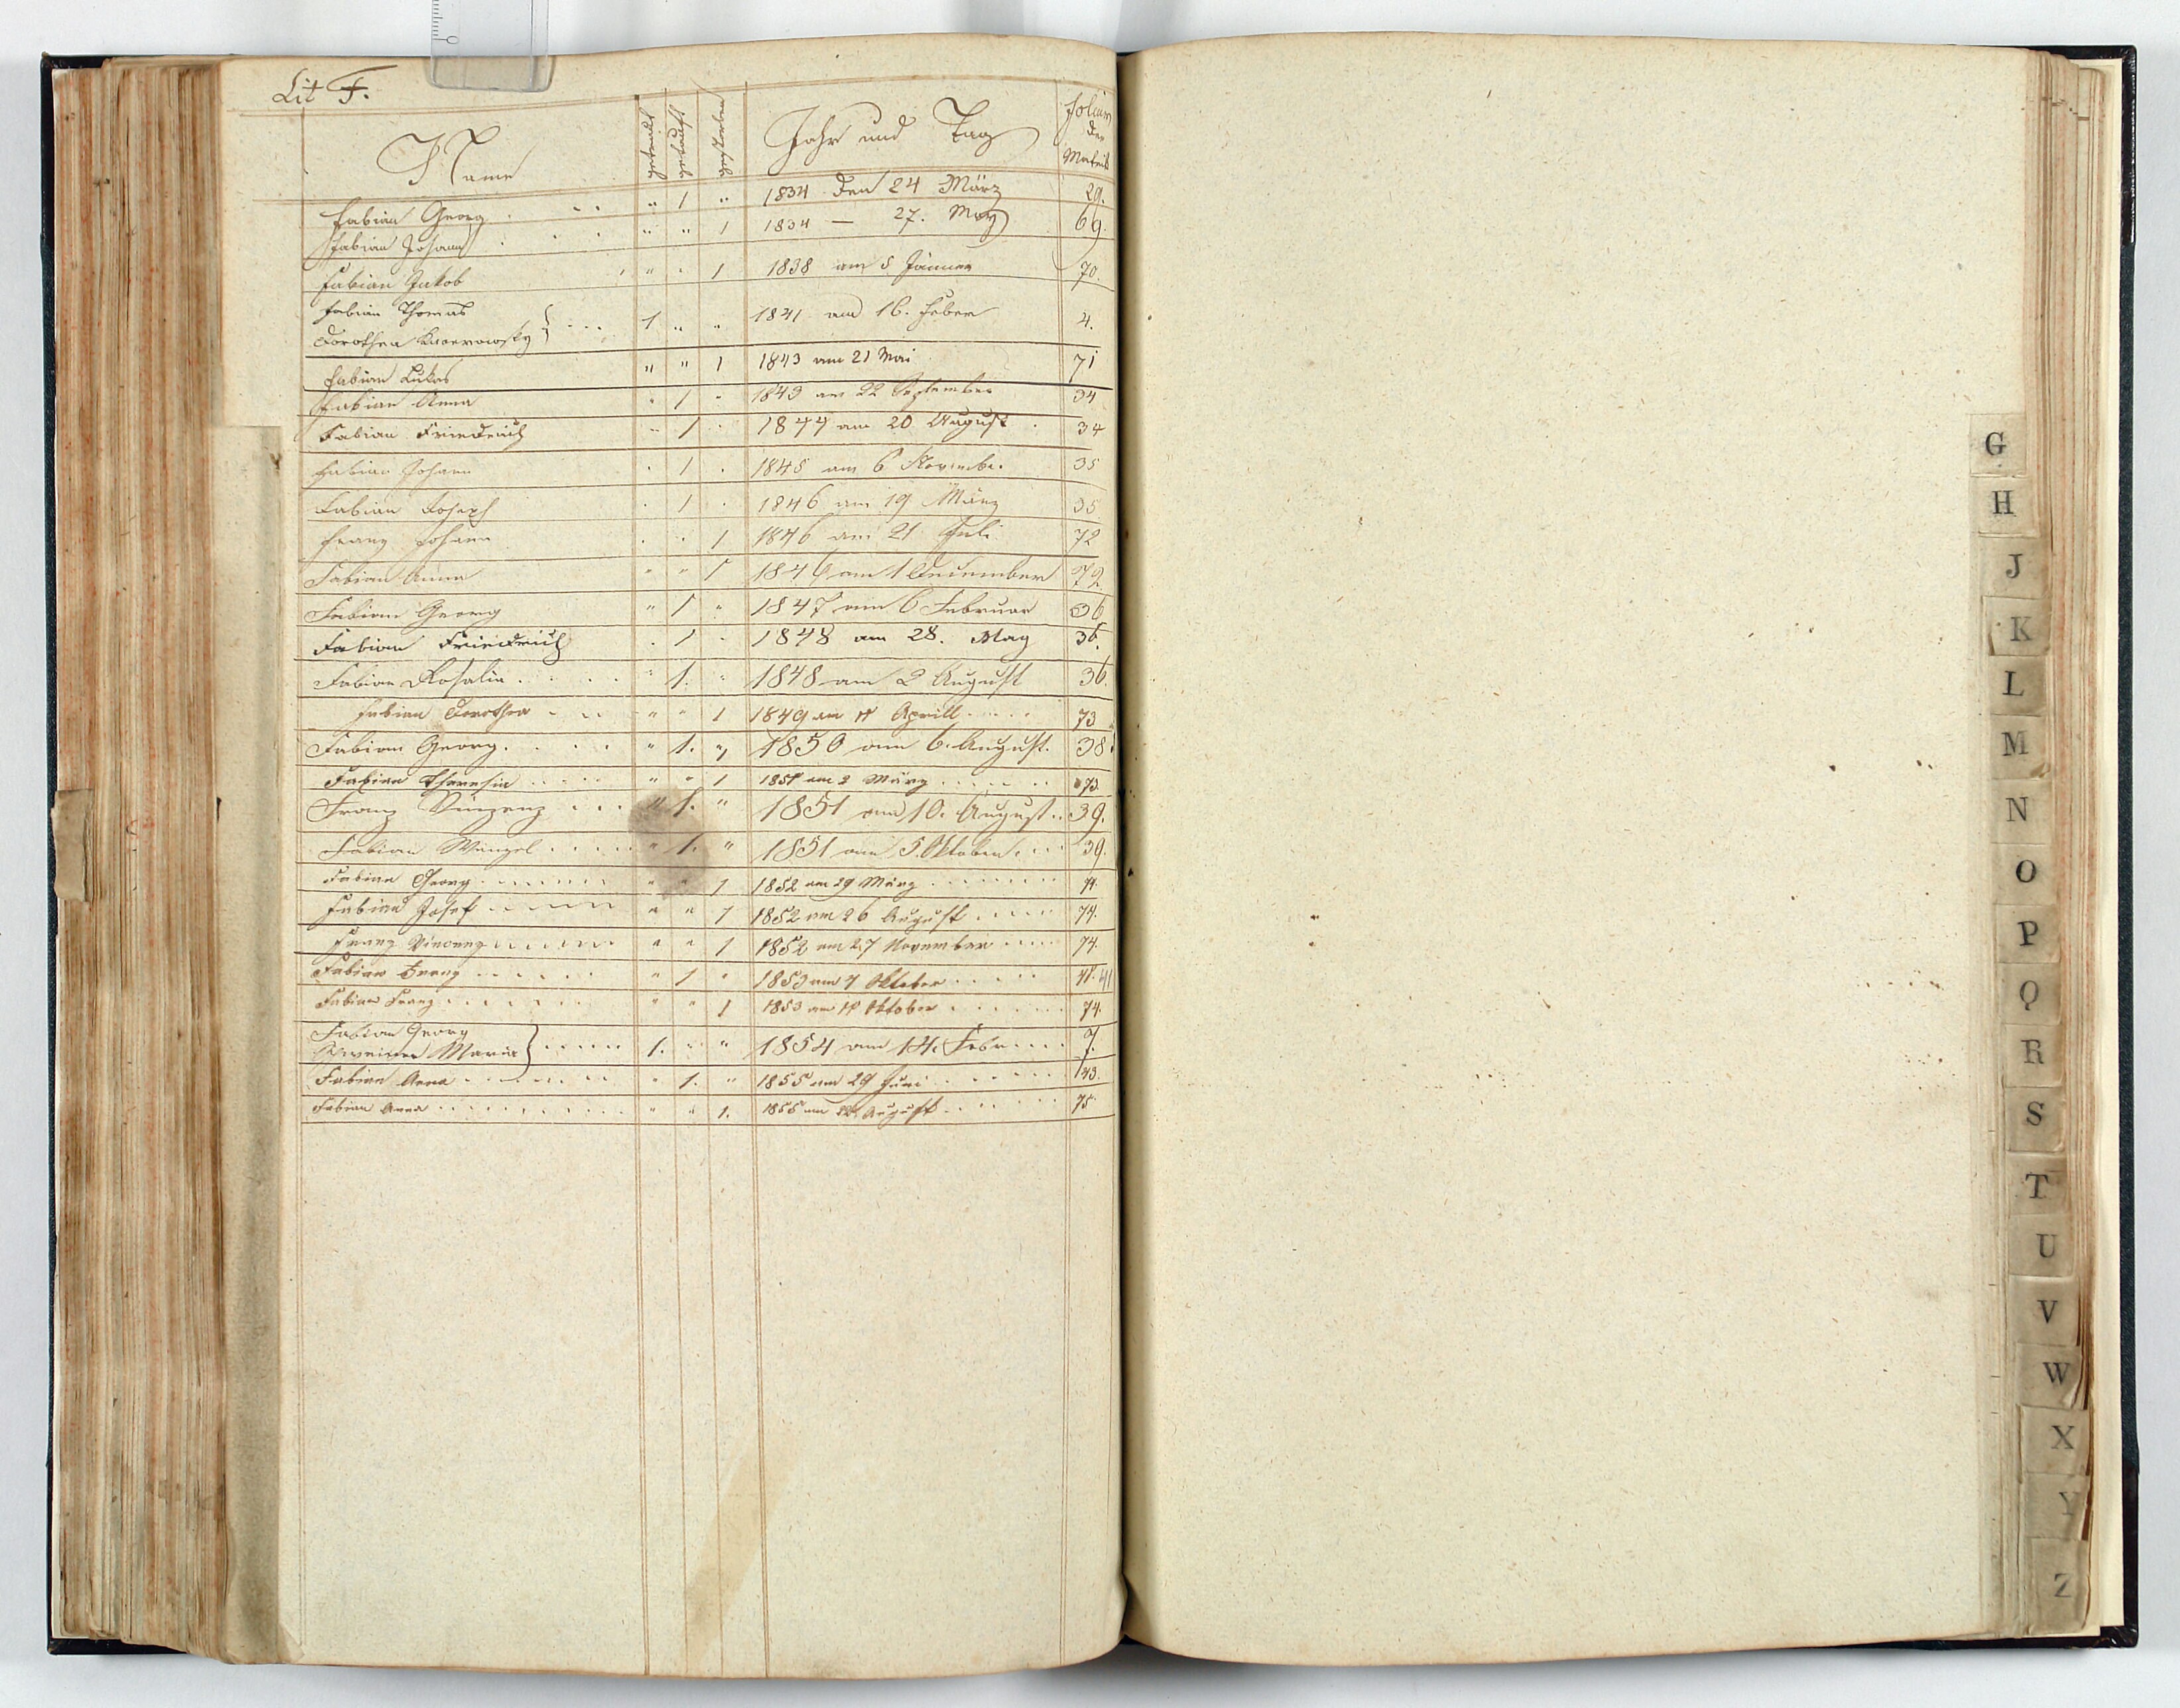 Lit F.
Name getraut getauft gestorben Jahr und Tag Folium der Matrik
Fabian Georg . . . " 1 " 1834 den 24 März 29.
Fabian Johann . . . " " 1 1834 — 27. May 69.
Fabian Jakob " " 1 1838 am 8 Jänner 70.
Fabian Thomas
Dorothea } . . . 1 " " 1841 am 16. Feber 4.
Fabian Lukas " " 1 1843 am 21 Mai 71
Fabian Anna " 1 " 1843 am 22 September 34
Fabian Friedrich " 1 " 1844 am 20 August 34
Fabian Johann . 1 . 1845 am 6 November 35
Fabian Joseph . 1 . 1846 am 19 März 35
Franz Johann . . 1 1846 am 21 Juli 72
Fabian Anna " " 1 1846 am 1 December 72
Fabian Georg " 1 " 1847 am 6 Februar 36
Fabian Friedrich . 1 . 1848 am 28. May 36.
Fabian Rosalia . . . . " 1. " 1848 am 2 August 36.
Fabian Dorothea . . . " " 1 1849 am Aprill . . . . 73
Fabian Georg. . . . . " 1. " 1850 am 6. August. 38.
Fabian Theresia . . . . . " " 1 1851 am 2 März . . . . . . 73.
Franz Vinzenz . . . " 1. " 1851 am 10. August . . 39.
Fabian Wenzel . . . . . " 1. " 1851 am 5. Oktober. . . . 39.
Fabian Georg . . . . . . . " " 1 1852 am 29 März . . . . . . . . 74.
Fabian Josef . . . . . . " " 1 1852 am 26 August . . . . . 74.
Franz Vincenz . . . . . . " " 1 1852 am 27 November . . . . 74.
Fabian Franz . . . . . . " 1 " 1853 am 7 Oktober . . . . . 41. 41
Fabian Franz . . . . . . " " 1 1853 am Oktober . . . . . . 74.
Fabian Georg
Maria } . . . . . 1. " " 1854 am 14. Febr . . . . 7.
Fabian Anna . . . . . . . . " 1. " 1855 am 29 Juni . . . . . . . 43.
Fabian Anna . . . . . . . . . . " " 1. 1855 am August . . . . . . . 75
G
H
J
K
L
M
N
O
P
Q
R
S
T
U
V
W
X
Y
Z